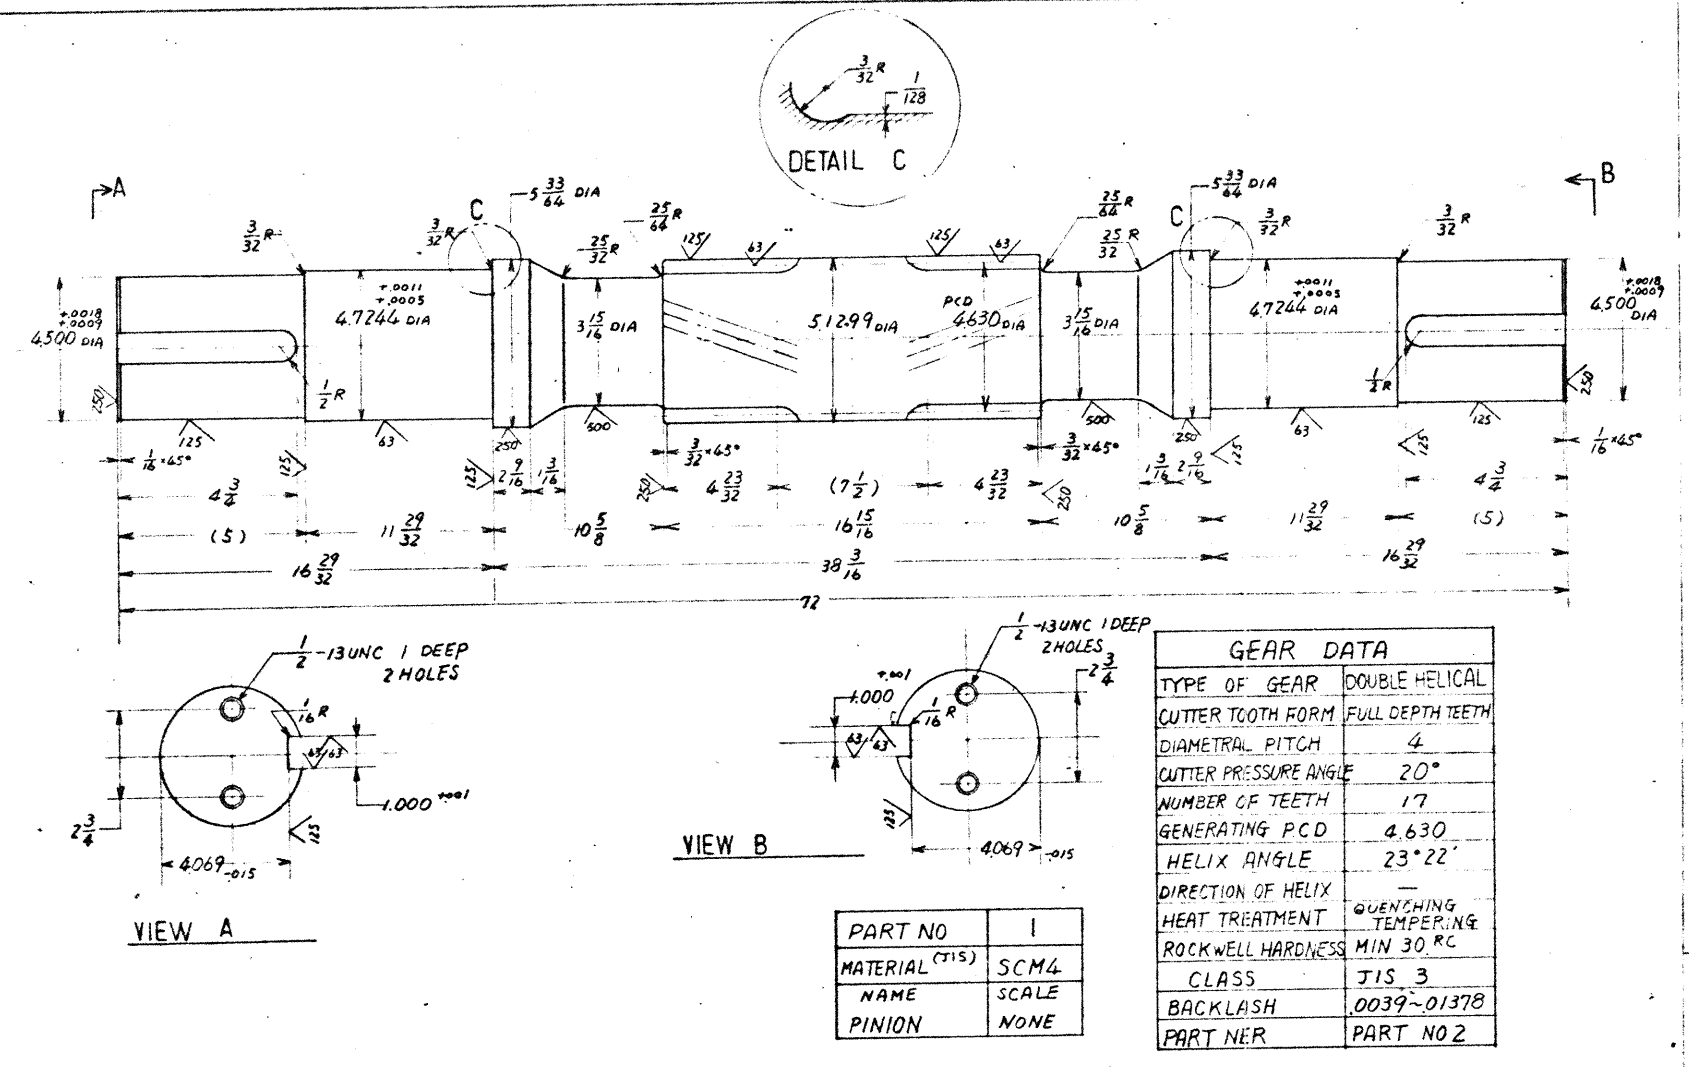 3/32 R
1/128
DETAIL C
A
B
5 33/64 DIA
5 33/64 DIA
C
C
3/32 R
3/32 R
25/32 R
25/64 R
125
63
125
63
25/64 R
25/32 R
3/32 R
3/32 R
+.0018
+.0009
4.500 DIA
+.0011
+.0005
4.7244 DIA
3 15/16 DIA
5.1299 DIA
PCD
4.630 DIA
3 15/16 DIA
+.0011
+.0005
4.7244 DIA
+.0018
+.0009
4.500 DIA
1/2 R
1/2 R
250
250
125
63
250
500
500
250
63
125
1/16 × 45°
125
125
2 9/16
1 3/16
250
3/32 × 45°
4 23/32
(7 1/2)
4 23/32
3/32 × 45°
250
1 3/16
2 9/16
125
125
1/16 × 45°
4 3/4
4 3/4
(5)
11 29/32
10 5/8
16 15/16
10 5/8
11 29/32
(5)
16 29/32
38 3/16
16 29/32
72
1/2 -13UNC 1 DEEP
2 HOLES
1/16 R
63
63
1.000 +.001
2 3/4
125
4.069 -.015
VIEW A
1/2 -13UNC 1 DEEP
2 HOLES
2 3/4
+.001
1.000
1/16 R
63
63
125
4.069 -.015
VIEW B
PART NO 1
MATERIAL (JIS) SCM4
NAME SCALE
PINION NONE
GEAR DATA
TYPE OF GEAR DOUBLE HELICAL
CUTTER TOOTH FORM FULL DEPTH TEETH
DIAMETRAL PITCH 4
CUTTER PRESSURE ANGLE 20°
NUMBER OF TEETH 17
GENERATING P.C.D 4.630
HELIX ANGLE 23°22'
DIRECTION OF HELIX —
HEAT TREATMENT QUENCHING TEMPERING
ROCKWELL HARDNESS MIN 30 RC
CLASS JIS 3
BACKLASH .0039~.01378
PART NER PART NO 2